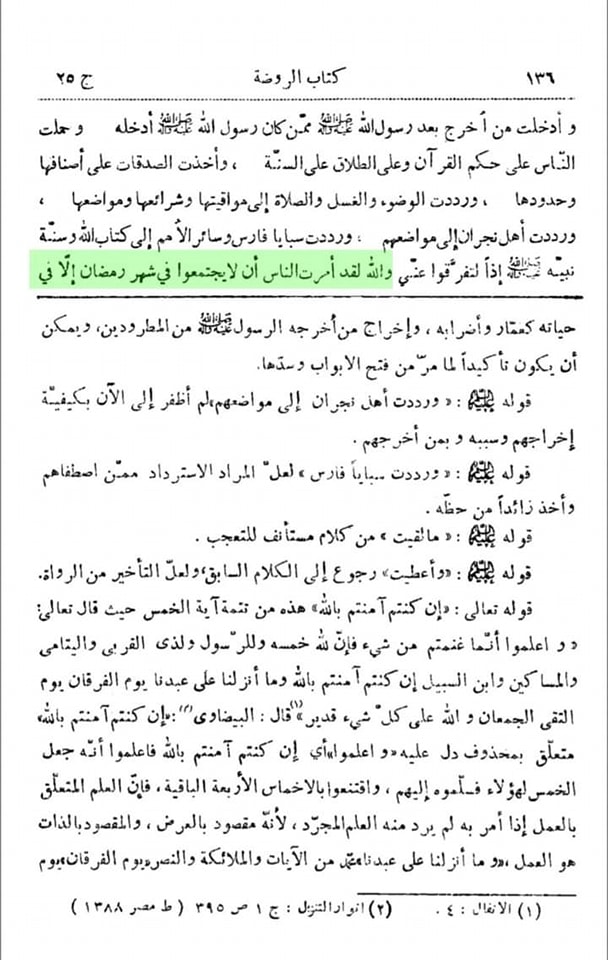 ١٣٦ كتاب الروضة ج ٢٥
و أدخلت من أخرج بعد رسول الله ﷺ ممّن كان رسول الله ﷺ أدخله و حملت
النّاس على حكم القرآن وعلى الطلاق على السنّة ، وأخذت الصدقات على أصنافها
وحدودها ، ورددت الوضوء والغسل والصلاة إلى مواقيتها وشرائعها ومواضعها ،
ورددت أهل نجران إلى مواضعهم ، ورددت سبايا فارس وسائر الأمم إلى كتاب الله وسنّة
نبيّه ﷺ إذاً لتفرَّقوا عنّي والله لقد أمرت الناس أن لا يجتمعوا في شهر رمضان إلّا في
حياته كعمّار وأضرابه ، وإخراج من أخرجه الرسول ﷺ من المطرودين، ويمكن
أن يكون تأكيداً لما مرّ من فتح الابواب وسدّها.
قوله عليه السلام : « ورددت أهل نجران إلى مواضعهم» لم أظفر إلى الآن بكيفيّة
إخراجهم وسببه و بمن أخرجهم .
قوله عليه السلام : « ورددت سبايا فارس » لعلّ المراد الاسترداد ممّن اصطفاهم
وأخذ زائداً من حظّه .
قوله عليه السلام : « مالقيت » من كلام مستأنف للتعجب .
قوله عليه السلام : «وأعطيت» رجوع إلى الكلام السابق، ولعلّ التأخير من الرواة.
قوله تعالى : «إن كنتم آمنتم بالله» هذه من تتمة آية الخمس حيث قال تعالى:
« و اعلموا أنّما غنمتم من شيء فإنّ لله خمسه وللرّسول ولذى القربى واليتامى
والمساكين وابن السبيل إن كنتم آمنتم بالله وما أنزلنا على عبدنا يوم الفرقان يوم
التقى الجمعان و الله على كلّ شيء قدير»(١) قال : البيضاوى(٢) : «إن كنتم آمنتم بالله»
متعلّق بمحذوف دل عليه «و اعلموا» أي إن كنتم آمنتم بالله فاعلموا أنّه جعل
الخمس لهؤلاء فسلّموه إليهم ، واقتنعوا بالاخماس الأربعة الباقية ، فإنّ العلم المتعلّق
بالعمل إذا أمر به لم يرد منه العلم المجرّد ، لأنّه مقصود بالعرض ، والمقصود بالذات
هو العمل ، «و ما أنزلنا على عبدنا» محمّد من الآيات والملائكة والنصر «يوم الفرقان» يوم
(١) الانفال : ٤ . (٢) انوار التنزيل : ج ١ ص ٣٩٥ ( ط مصر ١٣٨٨ )